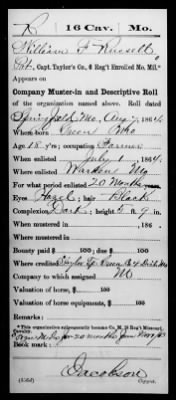 R 16 Cav. Mo.
William F Russell
Pvt, Capt. Taylor's Co., 6 Reg't Enrolled Mo. Mil.*
Appears on
Company Muster-in and Descriptive Roll
of the organization named above. Roll dated
Springfield, Mo, Aug 7, 1864
Where born Owen
Age 18 y'rs; occupation Farmer
When enlisted July 1, 1864
Where enlisted Mo
For what period enlisted 20 Months years.
Eyes Hazel; hair Black
Complexion Dark; height 5 ft. 9 in.
When mustered in , 186
Where mustered in
Bounty paid $ 100; due $ 100
Where credited
Company to which assigned M
Valuation of horse, $ 100
Valuation of horse equipments, $ 100
Remarks:
*This organization subsequently became Co. M, 16 Reg't Missouri
for 20 months from
Book mark:
Jacobson
(356d) Copyist.